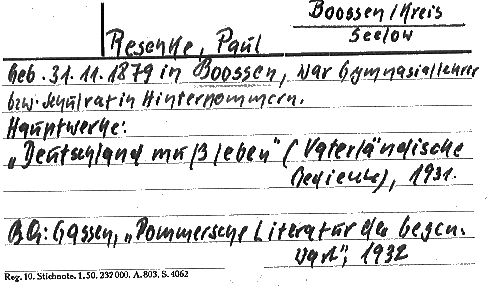 Boossen/Kreis
Seelow
Reschke, Paul
Geb. 31.11.1879 in Boossen, war Gymnasiallehrer
bzw. Schulrat in Hinterpommern.
Hauptwerke:
„Deutschland muß leben" (Vaterländische
Gedichte), 1931.
BQ: Gassen, „Pommersche Literatur der Gegen-
wart", 1932
Reg. 10. Stichnote. 1. 50. 237 000. A. 803. S. 4062